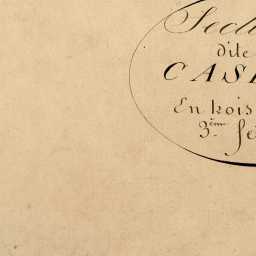 Secti
dite
CAS
En trois
3ème fe